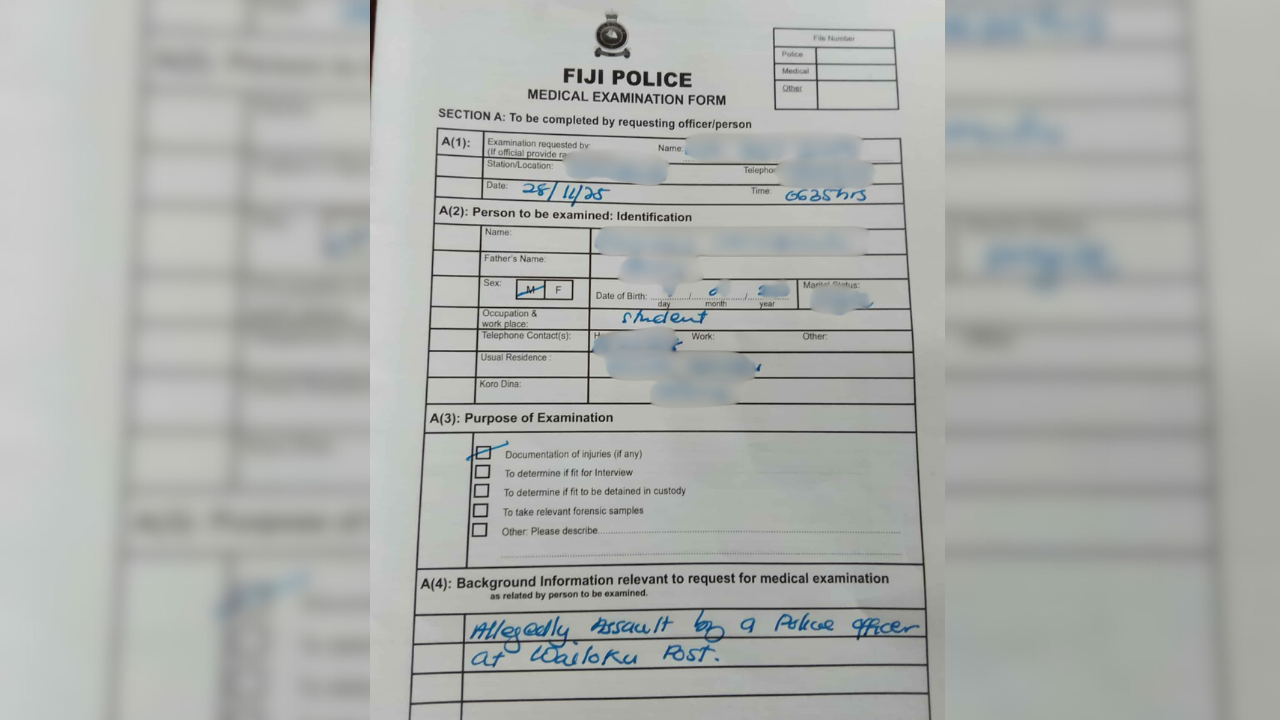 FIJI POLICE
MEDICAL EXAMINATION FORM
File Number
Police
Medical
Other
SECTION A: To be completed by requesting officer/person
A(1):
Examination requested by
(If official provide
Name:
Station/Location:
Date: 28/11/25
Time: 0635hrs
A(2): Person to be examined: Identification
Name:
Father's Name:
Sex: M F
Date of Birth: / /
day month year
Marital Status:
Occupation &
work place: student
Telephone Contact(s):
Work:
Other:
Usual Residence :
Koro Dina:
A(3): Purpose of Examination
Documentation of injuries (if any)
To determine if fit for Interview
To determine if fit to be detained in custody
To take relevant forensic samples
Other: Please describe
A(4): Background Information relevant to request for medical examination
as related by person to be examined.
Allegedly Assault by a Police officer
at Wailoku Post.